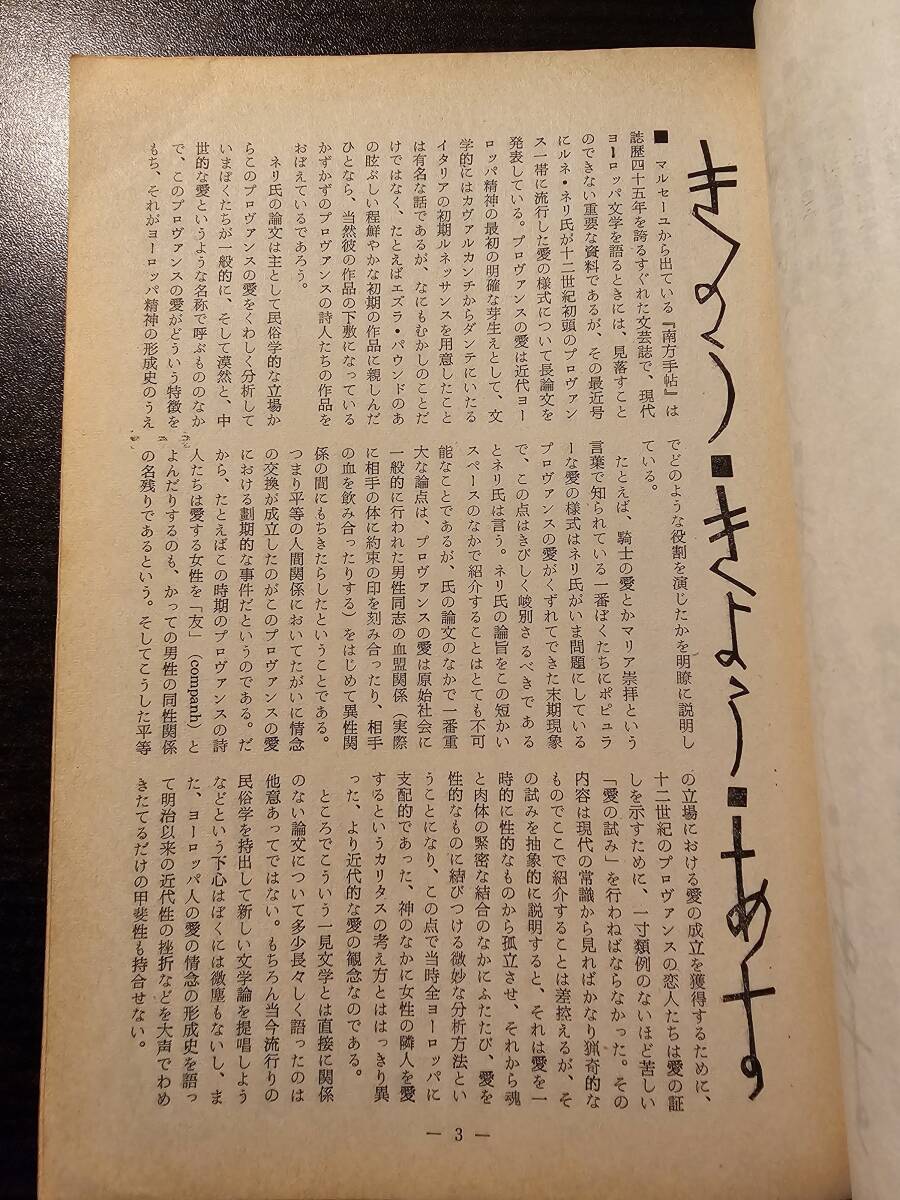 きのう■きょう■あす
■ マルセーユから出ている『南方手帖』は
誌歴四十五年を誇るすぐれた文芸誌で、現代
ヨーロッパ文学を語るときには、見落すこと
のできない重要な資料であるが、その最近号
にルネ・ネリ氏が十二世紀初頭のプロヴァン
ス一帯に流行した愛の様式について長論文を
発表している。プロヴァンスの愛は近代ヨー
ロッパ精神の最初の明確な芽生えとして、文
学的にはカヴァルカンチからダンテにいたる
イタリアの初期ルネッサンスを用意したこと
は有名な話であるが、なにもむかしのことだ
けではなく、たとえばエズラ・パウンドのあ
の眩ぶしい程鮮やかな初期の作品に親しんだ
ひとなら、当然彼の作品の下敷になっている
かずかずのプロヴァンスの詩人たちの作品を
おぼえているであろう。
ネリ氏の論文は主として民俗学的な立場か
らこのプロヴァンスの愛をくわしく分析して
いまぼくたちが一般的に、そして漠然と、中
世的な愛というような名称で呼ぶもののなか
で、このプロヴァンスの愛がどういう特徴を
もち、それがヨーロッパ精神の形成史のうえ
でどのような役割を演じたかを明瞭に説明し
ている。
たとえば、騎士の愛とかマリア崇拝という
言葉で知られている一番ぼくたちにポピュラ
ーな愛の様式はネリ氏がいま問題にしている
プロヴァンスの愛がくずれてできた末期現象
で、この点はきびしく峻別さるべきである
とネリ氏は言う。ネリ氏の論旨をこの短かい
スペースのなかで紹介することはとても不可
能なことであるが、氏の論文のなかで一番重
大な論点は、プロヴァンスの愛は原始社会に
一般的に行われた男性同志の血盟関係（実際
に相手の体に約束の印を刻み合ったり、相手
の血を飲み合ったりする）をはじめて異性関
係の間にもちきたらしたということである。
つまり平等の人間関係においてたがいに情念
の交換が成立したのがこのプロヴァンスの愛
における劃期的な事件だというのである。だ
から、たとえばこの時期のプロヴァンスの詩
人たちは愛する女性を「友」（companh）と
よんだりするのも、かっての男性の同性関係
の名残りであるという。そしてこうした平等
の立場における愛の成立を獲得するために、
十二世紀のプロヴァンスの恋人たちは愛の証
しを示すために、一寸類例のないほど苦しい
「愛の試み」を行わねばならなかった。その
内容は現代の常識から見ればかなり猟奇的な
ものでここで紹介することは差控えるが、そ
の試みを抽象的に説明すると、それは愛を一
時的に性的なものから孤立させ、それから魂
と肉体の緊密な結合のなかにふたたび、愛を
性的なものに結びつける微妙な分析方法とい
うことになり、この点で当時全ヨーロッパに
支配的であった、神のなかに女性の隣人を愛
するというカリタスの考え方とははっきり異
った、より近代的な愛の観念なのである。
ところでこういう一見文学とは直接に関係
のない論文について多少長々しく語ったのは
他意あってではない。もちろん当今流行りの
民俗学を持出して新しい文学論を提唱しよう
などという下心はぼくには微塵もないし、ま
た、ヨーロッパ人の愛の情念の形成史を語っ
て明治以来の近代性の挫折などを大声でわめ
きたてるだけの甲斐性も持合せない。
— 3 —